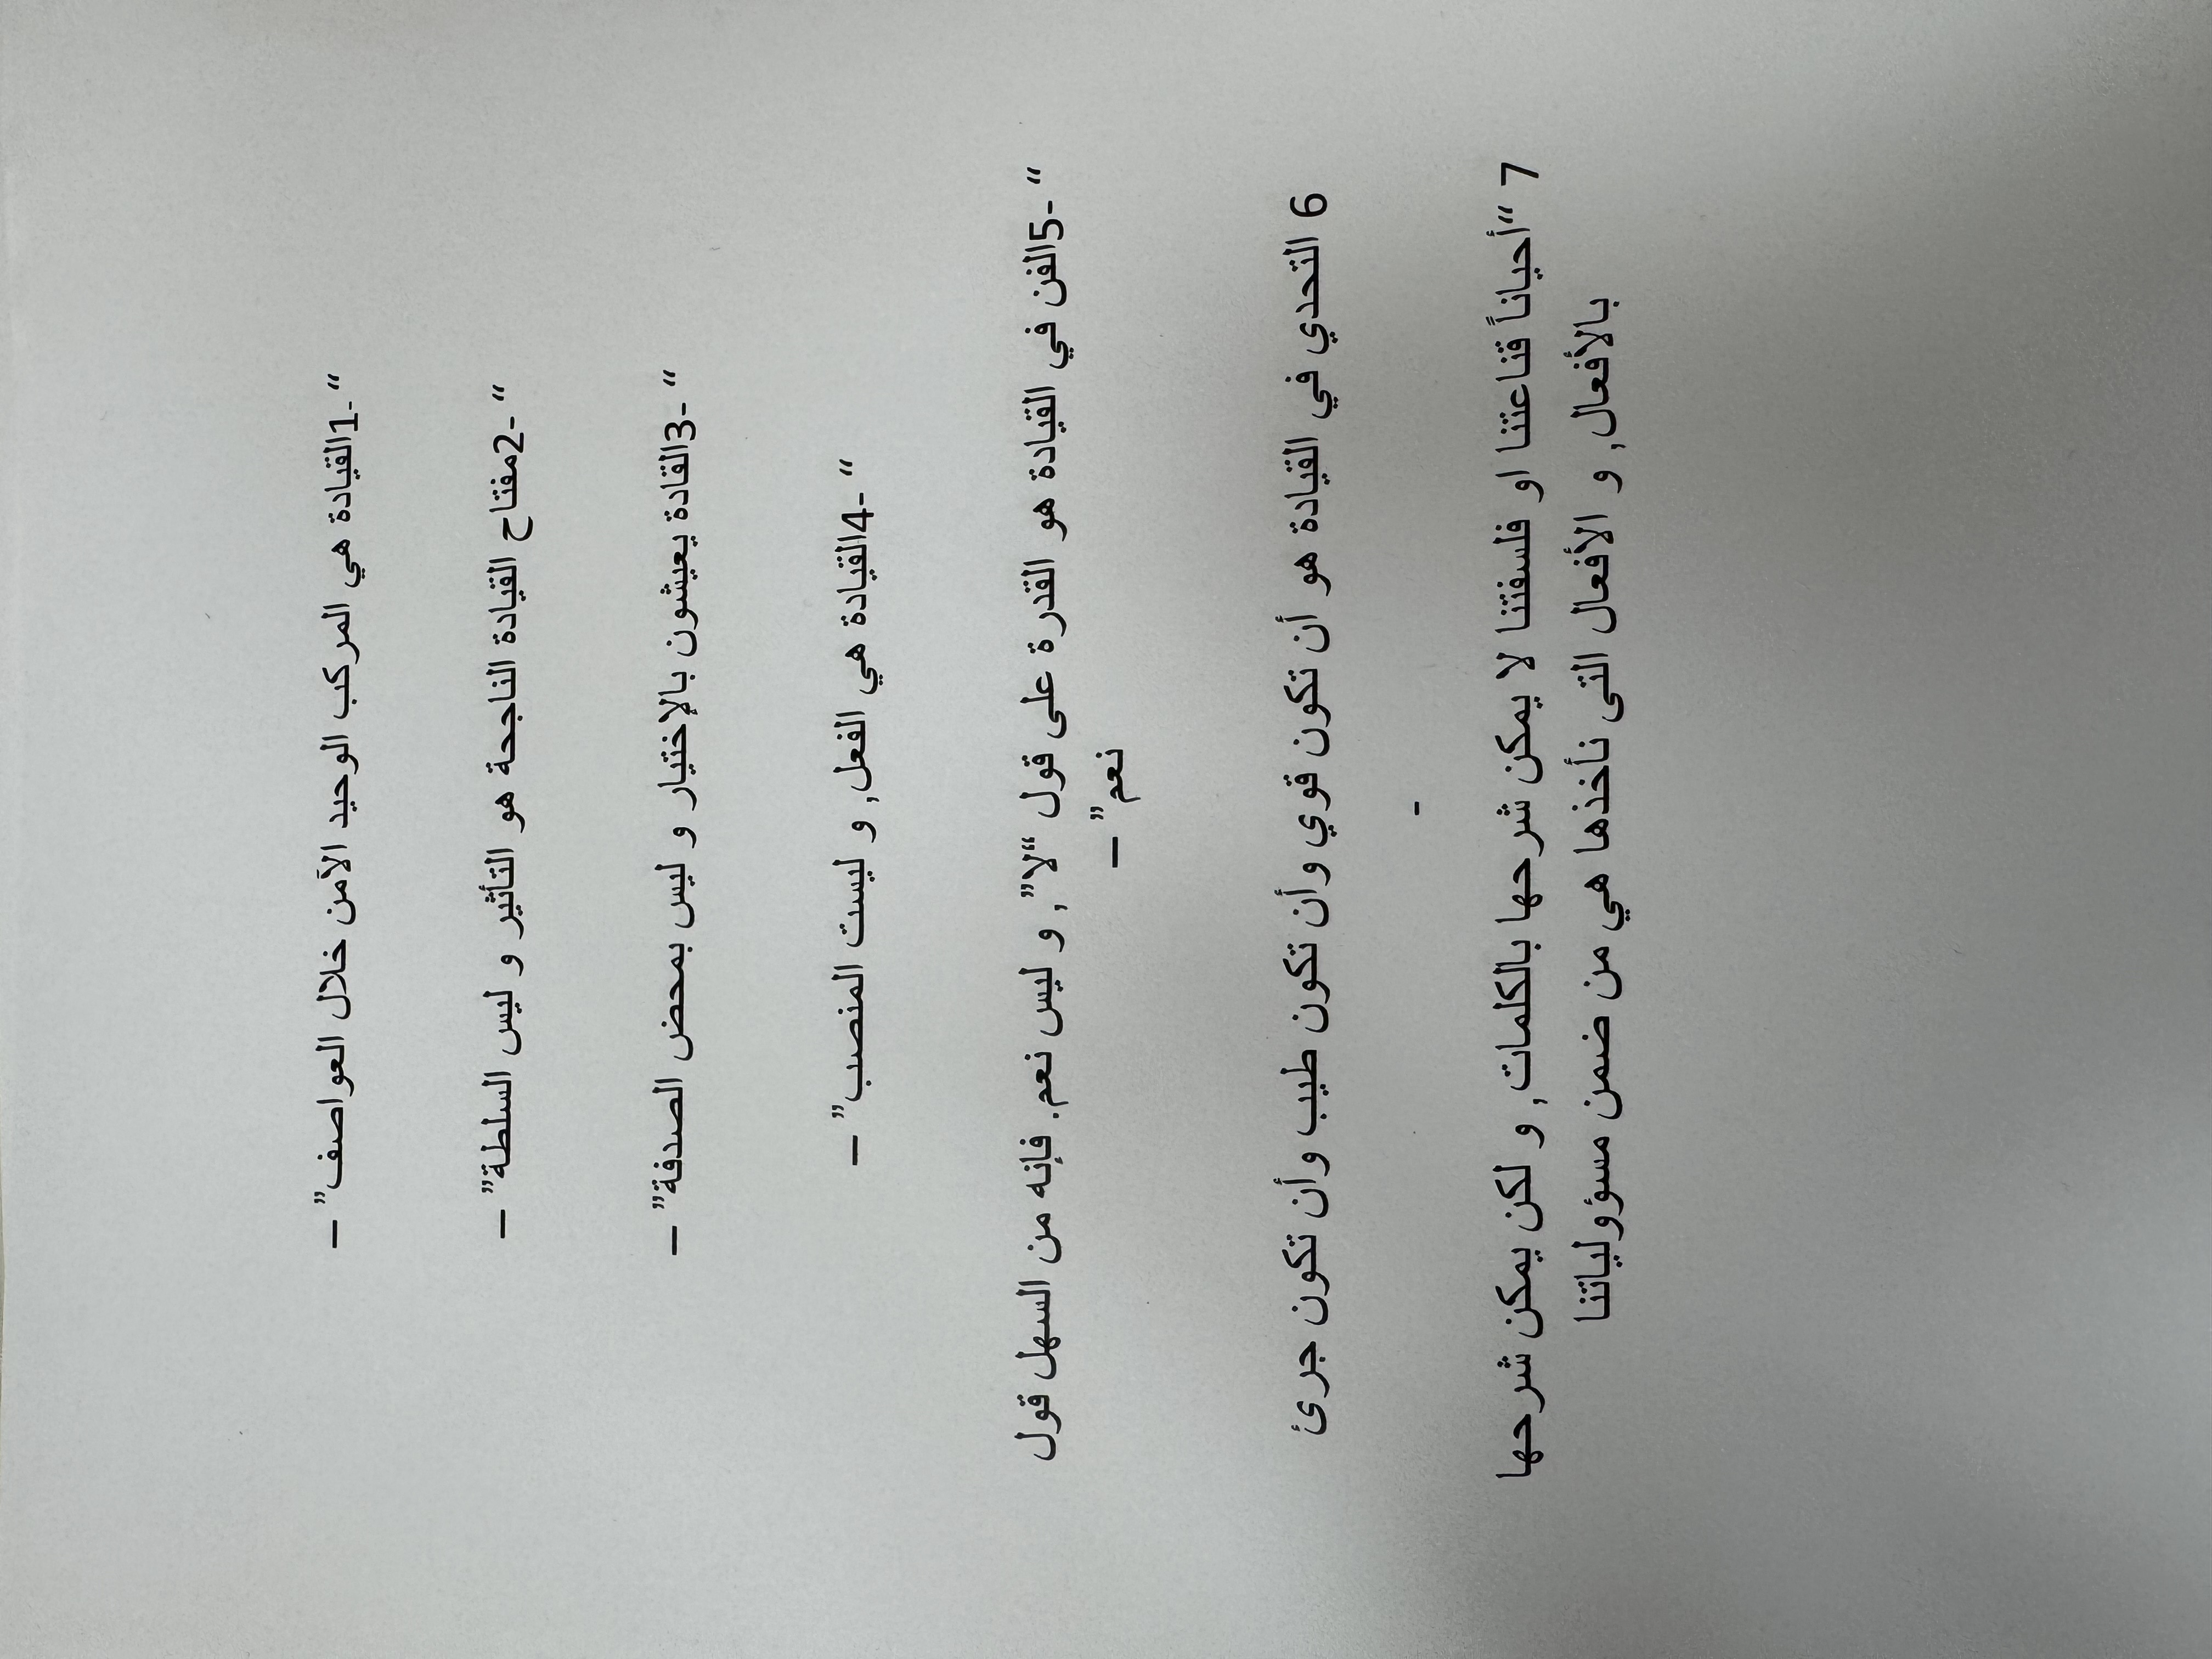 “ -1القيادة هي المركب الوحيد الآمن خلال العواصف” –
“ -2مفتاح القيادة الناجحة هو التأثير و ليس السلطة” –
“ -3القادة يعيشون بالإختيار و ليس بمحض الصدفة” –
“ -4القيادة هي الفعل, و ليست المنصب” –
“ -5الفن في القيادة هو القدرة على قول “لا”, و ليس نعم. فإنه من السهل قول
نعم” –
6 التحدي في القيادة هو أن تكون قوي وأن تكون طيب وأن تكون جرئ
-
7 “أحياناً قناعتنا او فلسفتنا لا يمكن شرحها بالكلمات, و لكن يمكن شرحها
بالأفعال, و الأفعال التى نأخذها هي من ضمن مسؤولياتنا